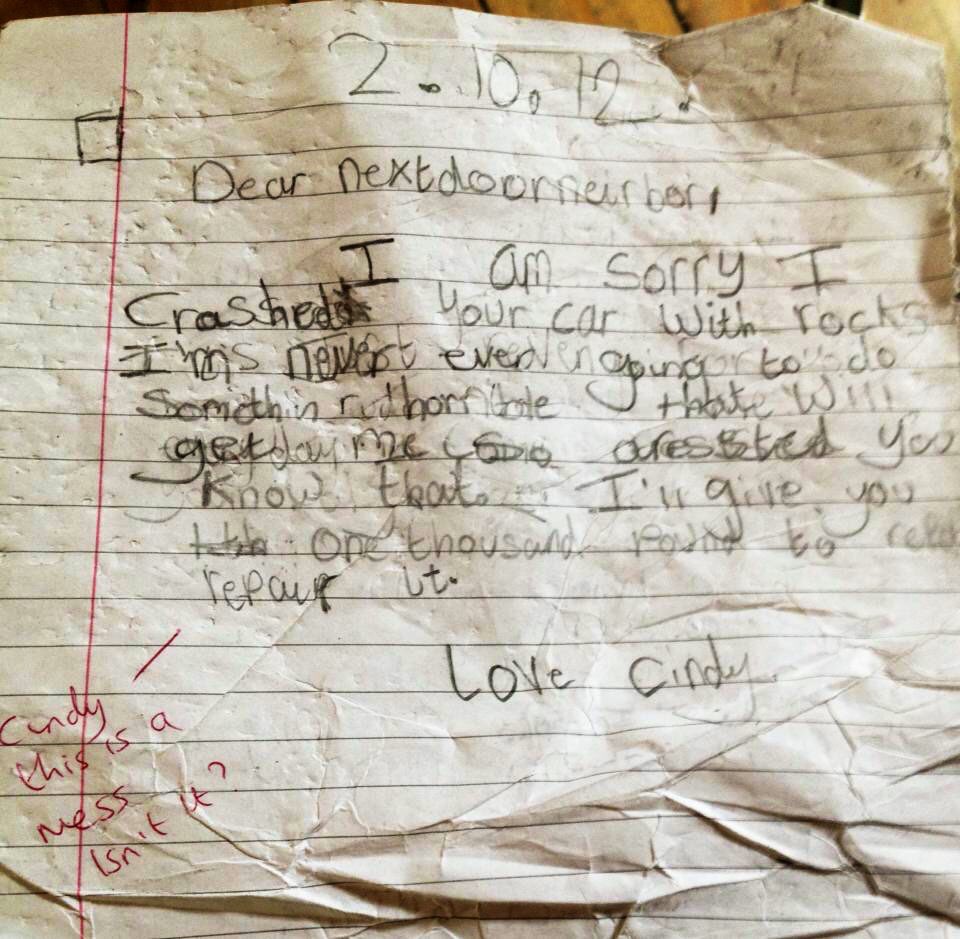 2.10.12.
Dear nextdoorneirbor,
I am sorry I
Crashed your car with rocks
I'm never ever going to do
Somethin horrible that will
get me aressted you
Know that. I'll give you
one thousand pound to
repair it.
Love Cindy.
Cindy
this is a
mess
isn't it?